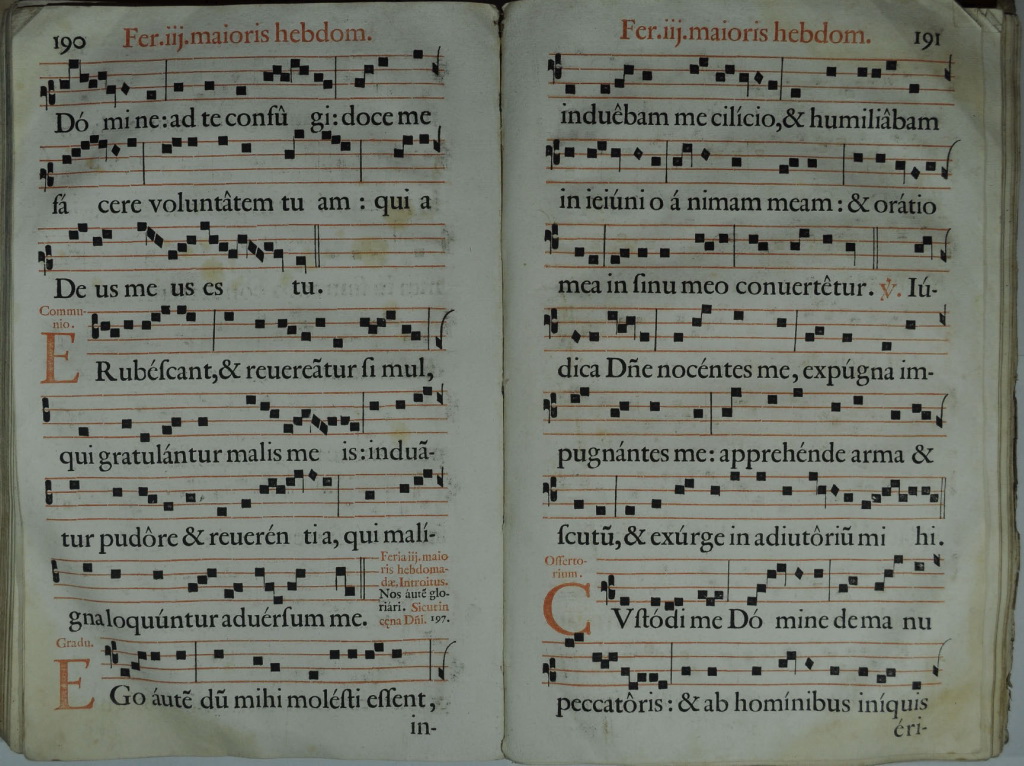 190 Fer.iij.maioris hebdom.
Dó mi ne:ad te confû gi:doce me
fá cere voluntâtem tu am : qui a
De us me us es tu.
Commu-
nio.
E Rubéſcant,& reuereãtur ſi mul,
qui gratulántur malis me is:induã-
tur pudôre & reuerén ti a, qui malí-
Feria iij. maio
ris hebdoma-
dæ. Introitus.
Nos áutẽ glo-
riári. Sicut in
cęna Dñi. 197.
gna loquúntur aduérſum me.
Gradu.
E Go áutẽ dũ mihi moléſti eſſent,
in-
Fer.iij.maioris hebdom. 191
induêbam me cilício,& humiliâbam
in ieiúni o á nimam meam : & orátio
mea in ſinu meo conuertêtur. ℣. Iú-
dica Dñe nocéntes me, expúgna im-
pugnántes me: apprehénde arma &
ſcutũ,& exúrge in adiutôriũ mi hi.
Offerto-
rium.
C Vſtódi me Dó mine de ma nu
peccatôris : & ab homínibus iníquis
éri-